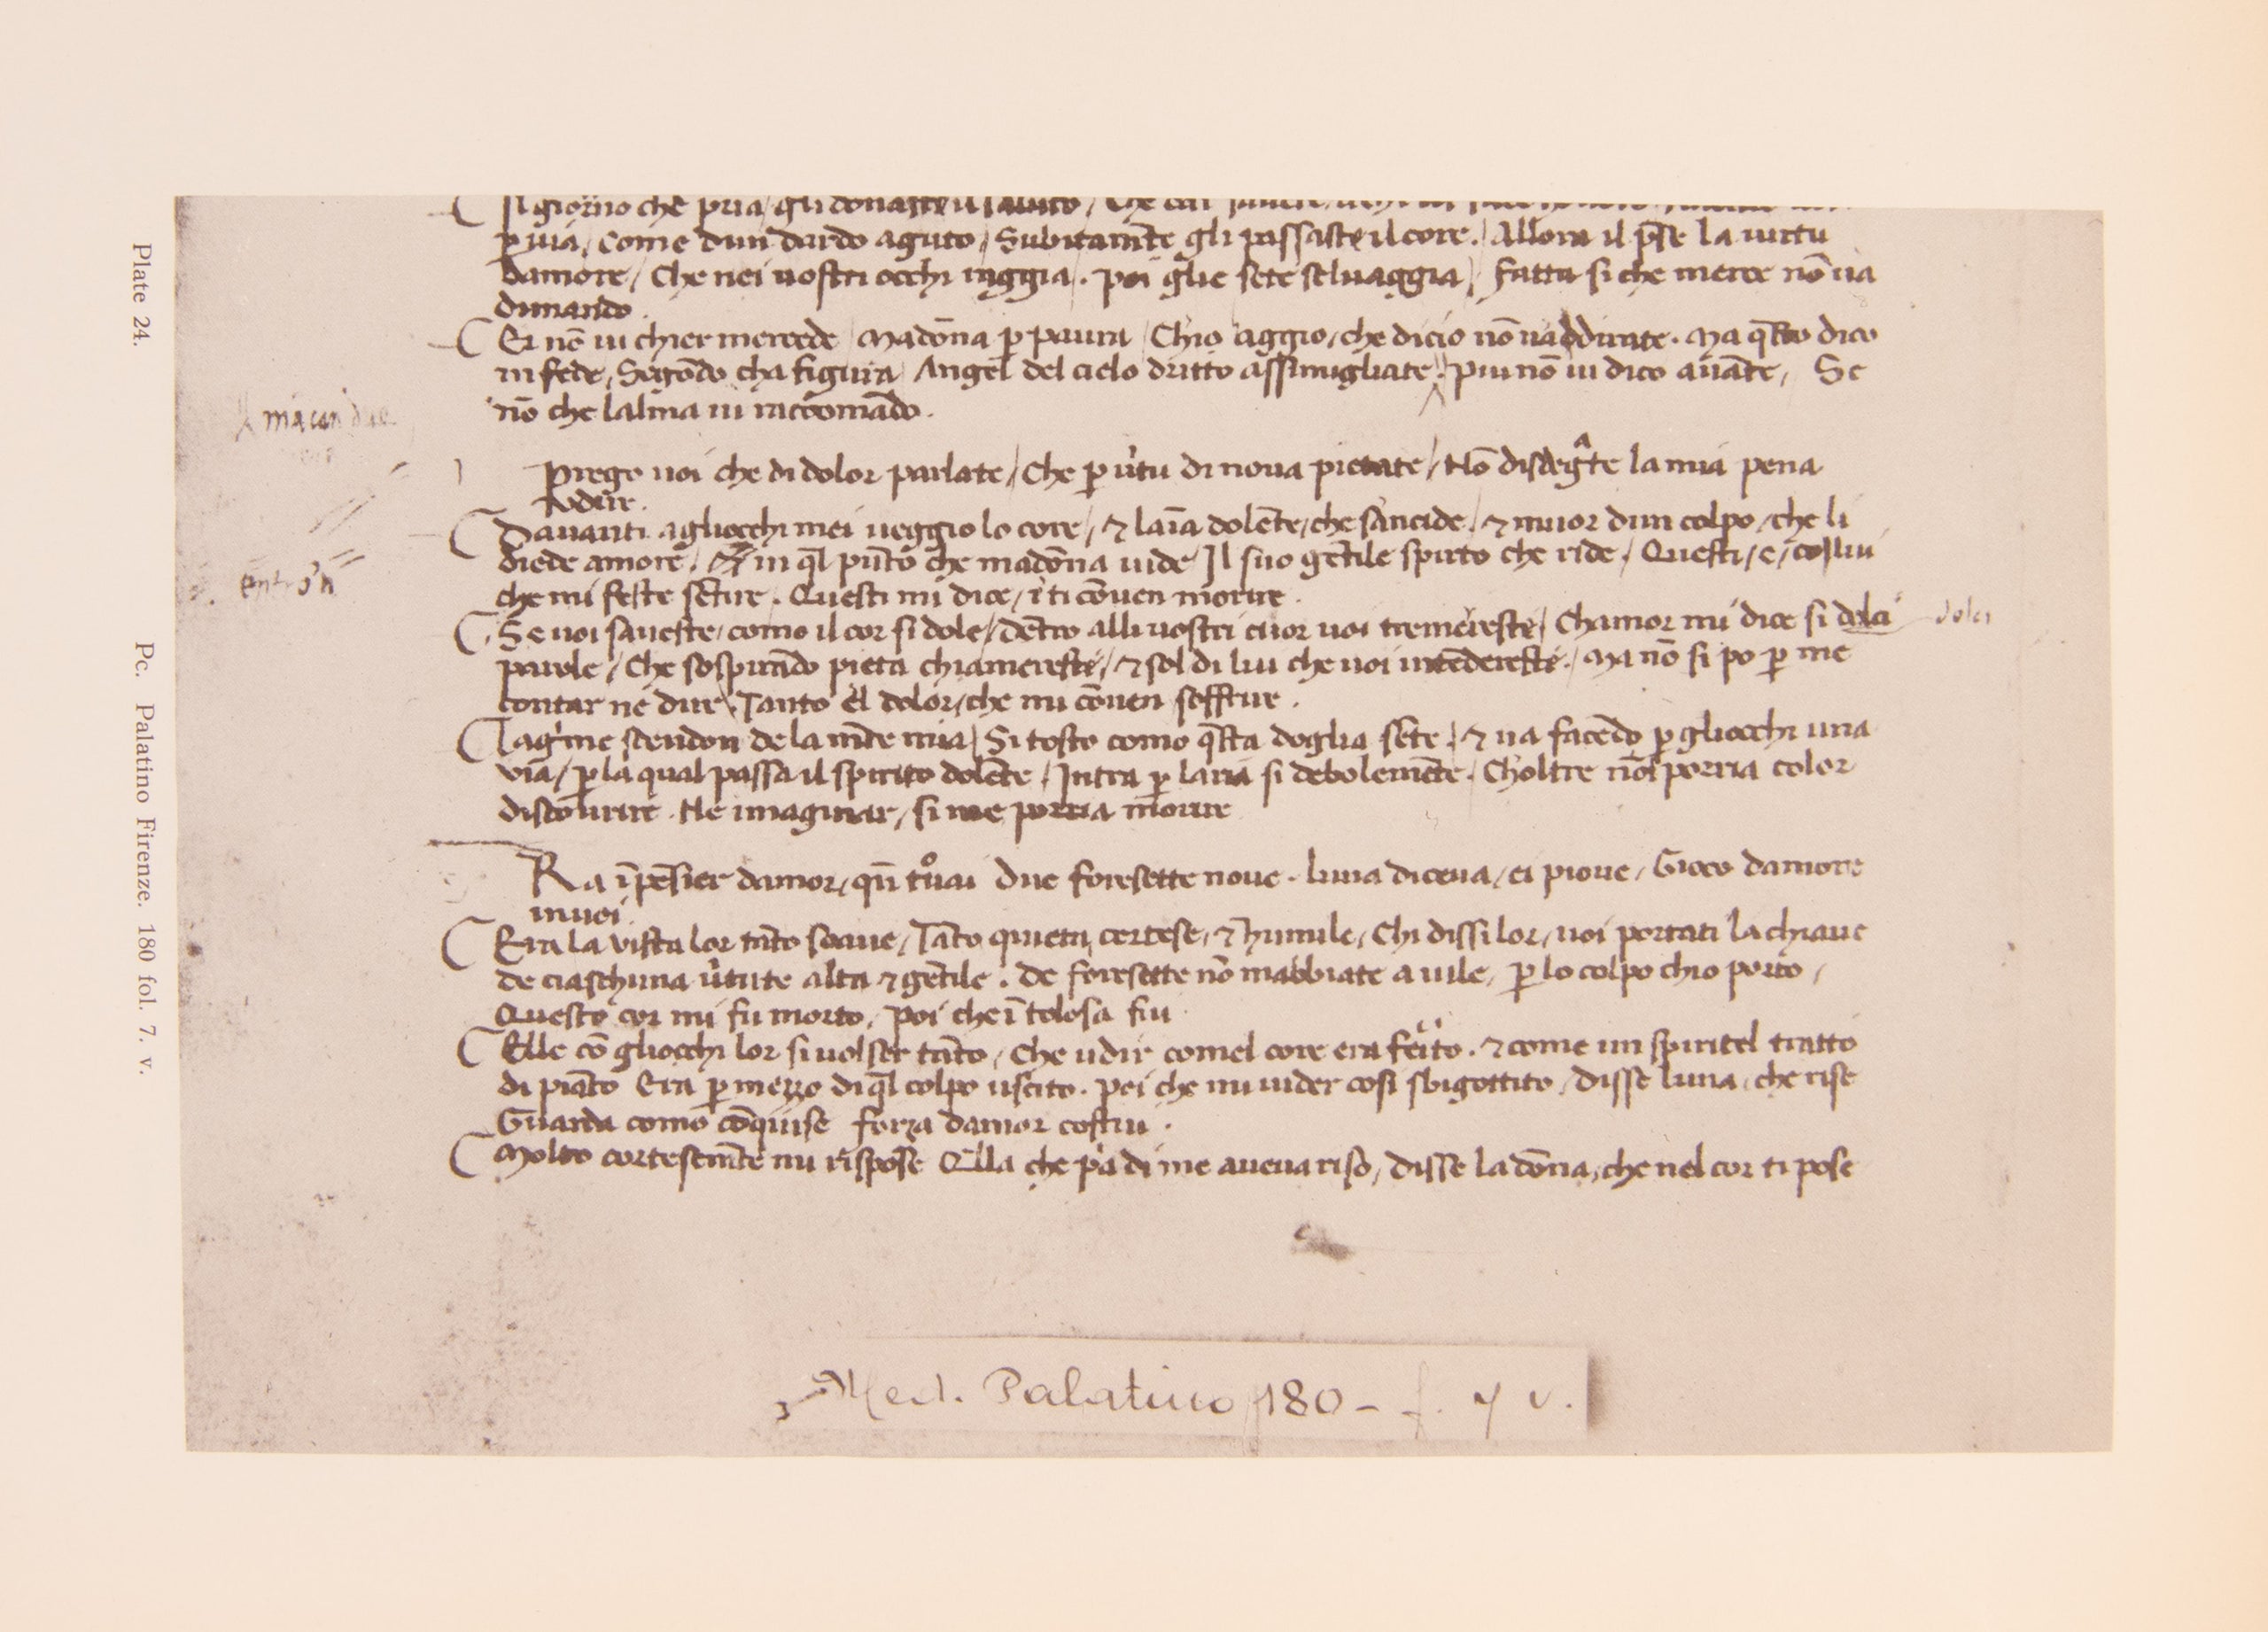 Plate 24.
Pc. Palatino Firenze. 180 fol. 7. v.
si giorno che pria / gli donaste il saluto / Che
p̱ uia / Come dun dardo aguto / Subitam̄te gli passaste il core. / Allora il p̄se la uirtu
damore / Che nei uostri occhi raggia. poi glie sete seluaggia / fatta si che merce nō ua
dimando.
Et nō ui chier mercede / Madōna p̱ paura / Chio aggio / che dicio nō ui adirate. Ma q̄sto dico
in fede, Segōdo cha figura / Angel del cielo dritto assimigliate. piu nō ui dico auāte, Se
nō che lalma ui raccomādo.
A
entrō
Prego uoi che di dolor parlate / Che p̱ u̓tu di noua pietate / Nō disdeg̑te la mia pena
udire.
Dauanti agliocchi mei ueggio lo core / & laīa dolēte / che sancide. & muor dun colpo / che li
diede amore. in q̄l pūto che madōna uide / Il suo gētile spirto che ride / Questi / e / collui
che mi feste sētire. Questi mi dice / i ti cōuen morire.
Se uoi saueste / como il cor si dole / dētro alli uostri cuor uoi tremereste / Chamor mi dice si dolci
dolci
parole / Che sospirādo pieta chiamereste / & sol di lui che uoi intēdereste. / Ma nō si po p̱ me
contar ne dire / Tanto el dolor / che mi cōuen soffrire.
Lag̓me scendon de la mēte mia / Si tosto como q̄sta doglia sēte / & ua facēdo p̱ gliocchi una
via / p̱ la qual passa il spirito dolēte / Intra p̱ laria si debolemēte. Choltre nō porria color
discourire. Ne imaginar / si me porria morire
Ra īpēsier damor / qn̄ tr̊uai due foresette noue. luna diceua / ei pioue / Gioco damore
inuoi.
Era la vista lor tāto soaue / Tāto quieta cortese / & humile / Chi dissi lor / uoi portati la chiaue
de ciaschuna u̓tute alta & gētile. De foresette nō mabbiate a uile / p̱ lo colpo chio porto /
Questo cor mi fu morto / poi che ī tolosa fui
Elle cō gliocchi lor si uolser tāto / Che udir comel core era feito. & come un spiritel tratto
di piāto Era p̱ mezzo di q̄l colpo uscito. poi che mi uider cosi sbigottito / disse luna / che rise
Guarda como cōquise forza damor costui.
Molto cortesemēte mi rispose Ella che p̓a di me aueua riso / disse la dōna / che nel cor ti pose
Med. Palatino 180 - f. 7 v.